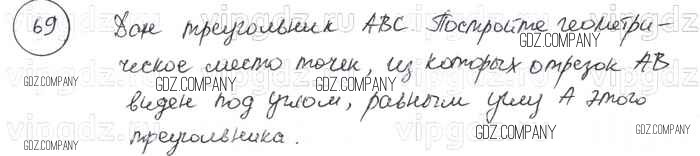 69 Дан треугольник ABC. Постройте геометри-
ческое место точек, из которых отрезок AB
виден под углом, равным углу A этого
треугольника.
GDZ.COMPANY GDZ.COMPANY GDZ.COMPANY
GDZ.COMPANY GDZ.COMPANY
vipgdz.ru